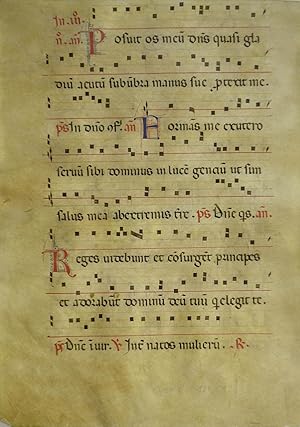 In iii.
n. an. Posuit os meū dn̄s quasi gla
diū acutū sub ūbra manus sue protexit me.
p̄s In dn̄o 9f. an̄ Formans me exutero
seruū sibi dominus in lucē genciū ut sim
salus mea ab extremis t̄re. p̄s Dn̄e q̄s. an̄.
Reges uidebunt et cōsurgēt principes
et adorabūt dominū deū tuū qi elegit te.
p̄s Dn̄e ī uir. ℣ Int̄ natos mulierū. ℟.